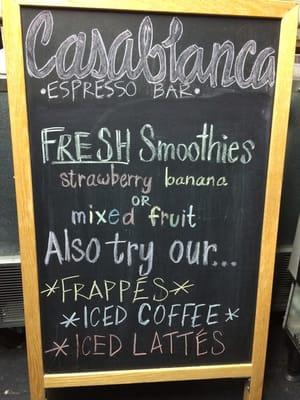 Casablanca
•ESPRESSO BAR•
FRESH Smoothies
strawberry banana
OR
mixed fruit
Also try our...
*FRAPPÉS*
*ICED COFFEE*
*ICED LATTÉS